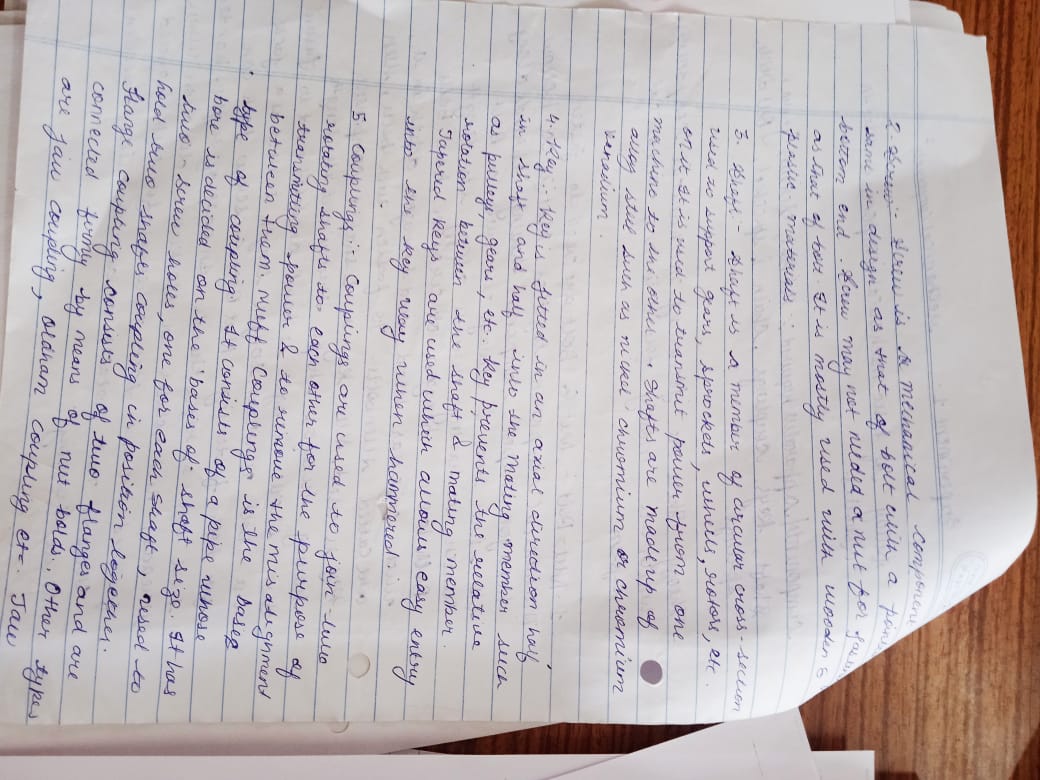 2. Screw:- Screw is a mechanical component
same in design as that of bolt with a
bottom end. Screw may not needed a nut for
as that of bolt. It is mostly used with wooden &
plastic materials.
3. Shaft - Shaft is a member of circular cross-section
used to support gears, sprockets, wheels, rotors, etc.
and it is used to transmit power from one
machine to the other. Shafts are made up of
alloy steel such as nickel chromium or chromium
venedium.
4. Key:- Key is fitted in an axial direction half
in shaft and half into the mating member such
as pulley, gears, etc. Key prevents the relative
rotation between the shaft & mating member.
Tapered keys are used which allows easy entry
into the key way when hammered.
5. Couplings:- Couplings are used to join two
rotating shafts to each other for the purpose of
transmitting power & to remove the misalignment
between them. Muff Couplings is the based
type of coupling. It consists of a pipe whose
bore is decided on the bases of shaft size. It has
two screw holes, one for each shaft, used to
hold two shafts coupling in position together.
Flange coupling consists of two flanges and are
connected firmly by means of nut bolds. Other types
are jaw coupling, oldham coupling etc. Jaw